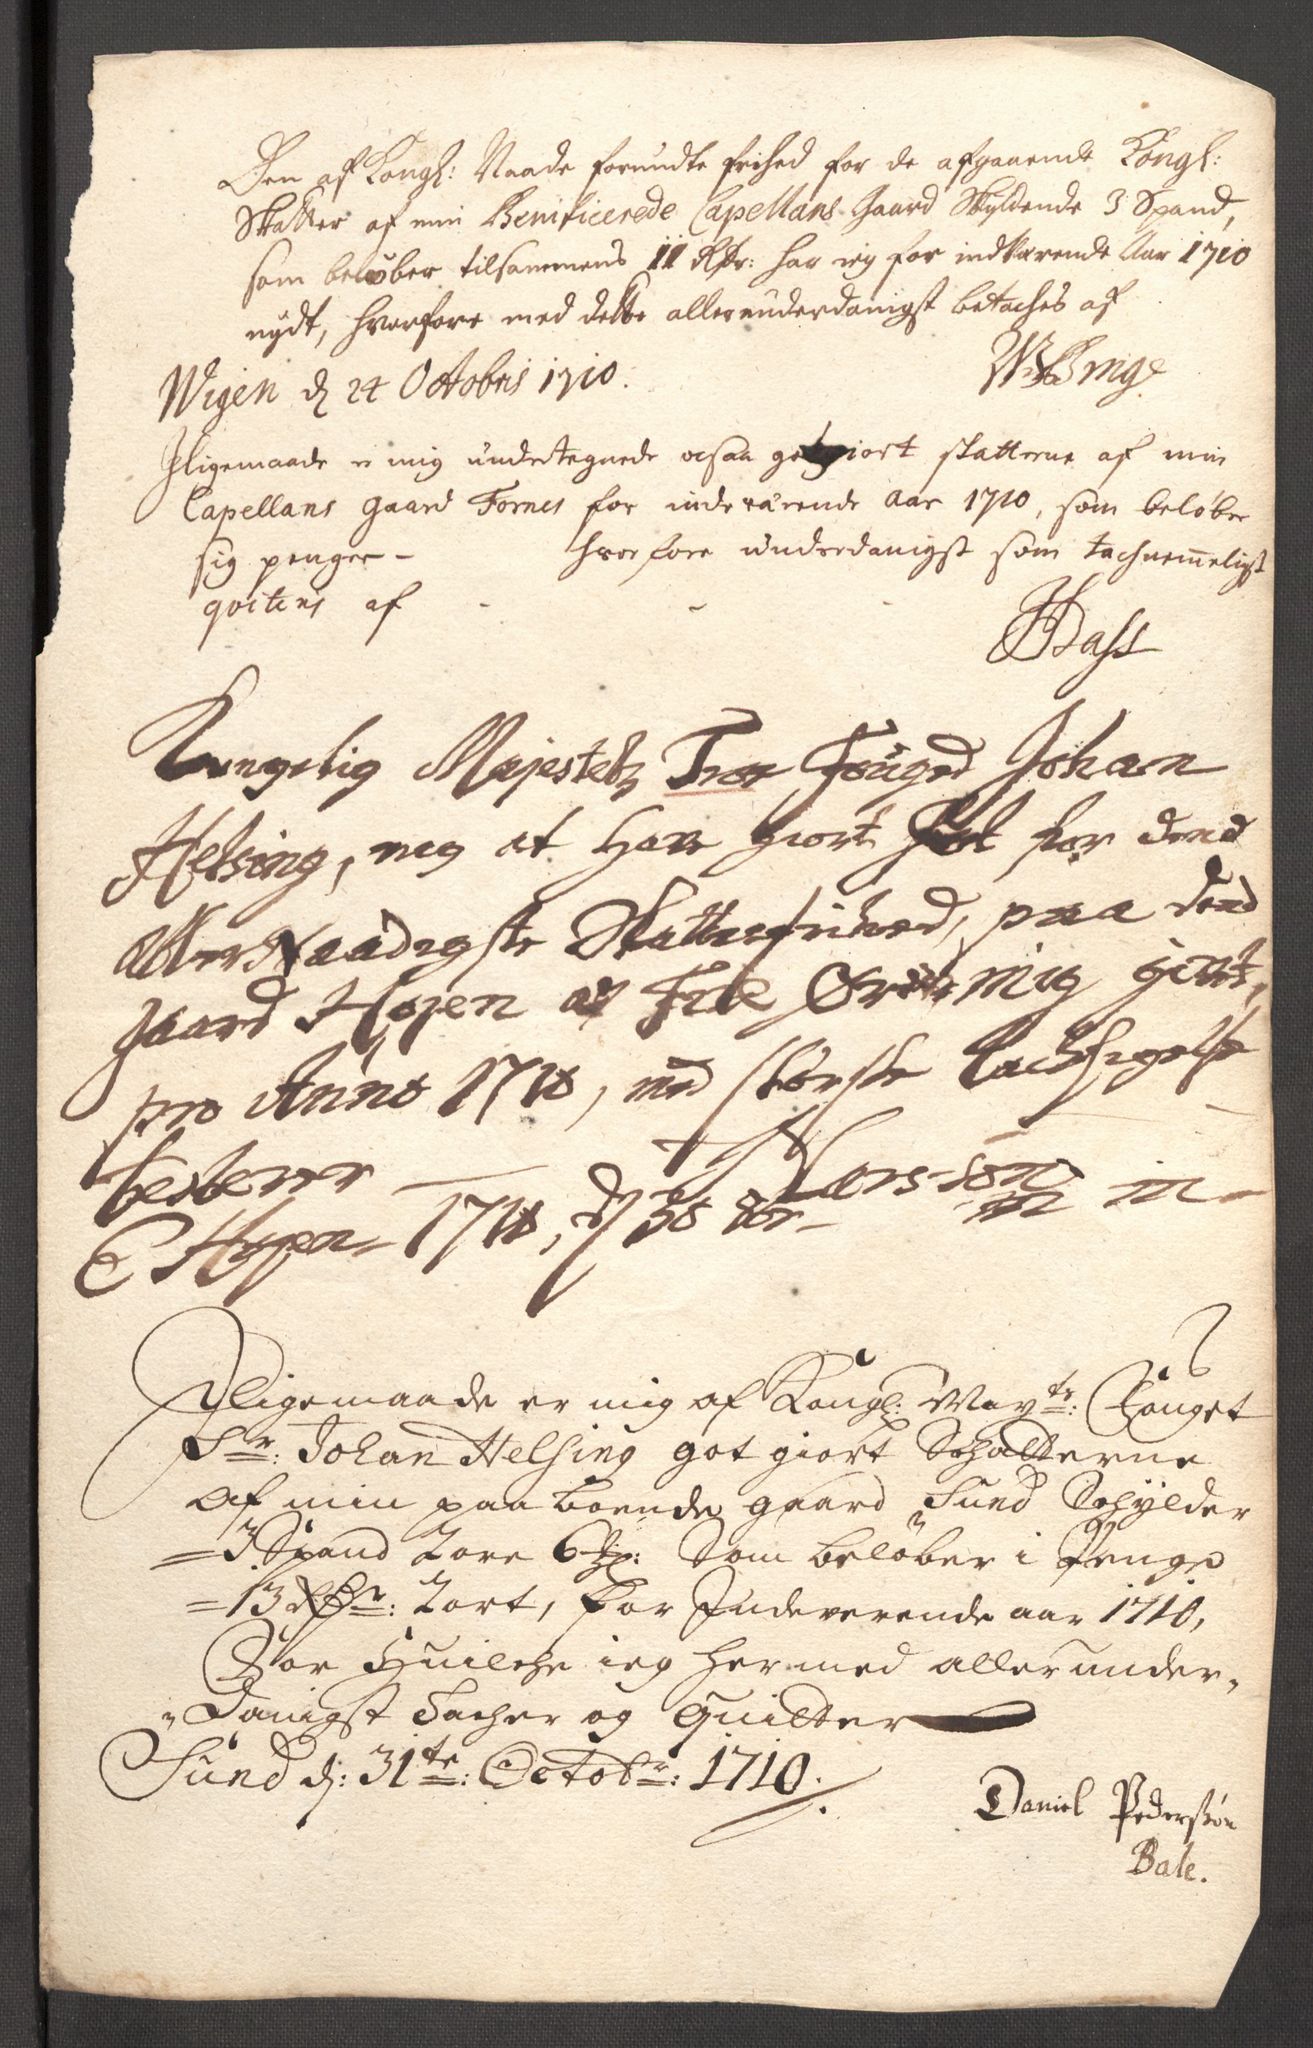 Den af Kongl: Naade forundte frihed for de afgaaende Kongl:
Skatter af min Benificerede Capellans Gaard Skyldende 3 Spand,
som beløber tilsammens 11 Rdr: har ieg for indværende Aar 1710
nÿdt, hvorfore med dette allerunderdanigst betaches af
Wigen d 24 Octobris 1710.
Iligemaade er mig undertegnede ocsaa godgiort skatterne af min
Capellans gaard Fornes for indeværende aar 1710, som beløber
sig penger - hvorfore underdanigst som tachnemmeligst
qvitteris af
HDass
Kongelig Majestets Troe Fouged Johan
Helsing, mig at Have giort for dend
allernaadigste Skattefrihed, paa dend
gaard Højen giort,
pro Anno 1710, med største tacksigelse
bekiender
Højen 1710, d 30 8br Larssøn
Iligemaade er mig af Kongl: Mayts: Fouget
Sr: Johan Helsing got giort Schatterne
af min paa boende gaard Sund Schylder
= 3 Spand 2 ore 6 Mkl: Som beløber i Penge
= 13 Rdr: 2 ort, for Indeverende aar 1710,
For Huilche ieg hermed allerunder-
danigst Tacher og Quitter
Sund d: 31te: Octobr: 1710.
Daniel Pedersøn
Bale.